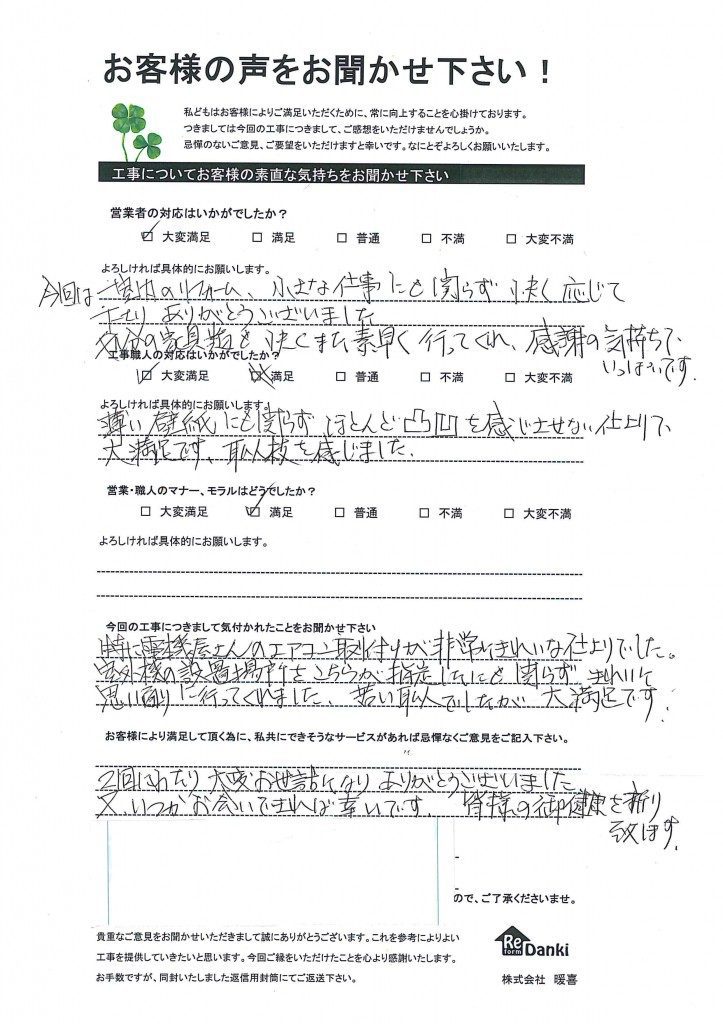 お客様の声をお聞かせ下さい！
私どもはお客様によりご満足いただくために、常に向上することを心掛けております。
つきましては今回の工事につきまして、ご感想をいただけませんでしょうか。
忌憚のないご意見、ご要望をいただけますと幸いです。なにとぞよろしくお願いいたします。
工事についてお客様の素直な気持ちをお聞かせ下さい
営業者の対応はいかがでしたか？
☑ 大変満足 □ 満足 □ 普通 □ 不満 □ 大変不満
よろしければ具体的にお願いします。
今回は一部屋のリフォーム、小さな仕事にも関らず快く応じて
下さり ありがとうございました
処分の家具類も快くまた素早く行ってくれ、感謝の気持ちで
いっぱいです.
工事職人の対応はいかがでしたか？
☑ 大変満足 ☑ 満足 □ 普通 □ 不満 □ 大変不満
よろしければ具体的にお願いします。
薄い壁紙にも関らず ほとんど凸凹を感じさせない仕上りで、
大満足です、職人技を感じました.
営業・職人のマナー、モラルはどうでしたか？
□ 大変満足 ☑ 満足 □ 普通 □ 不満 □ 大変不満
よろしければ具体的にお願いします。
今回の工事につきまして気付かれたことをお聞かせ下さい
特に電機屋さんのエアコン取付けが非常にきれいな仕上りでした。
室外機の設置場所をこちらが指定したにも関らず きれいで
思い通りに行ってくれました、若い職人でしたが 大満足です.
お客様により満足して頂く為に、私共にできそうなサービスがあれば忌憚なくご意見をご記入下さい。
2回にわたり 大変お世話になり ありがとうございました
又 いつか お会いできれば幸いです. 皆様の御健康を祈り
致ます.
ので、ご了承くださいませ。
貴重なご意見をお聞かせいただきまして誠にありがとうございます。これを参考によりよい
工事を提供していきたいと思います。今回ご縁をいただけたことを心より感謝いたします。
お手数ですが、同封いたしました返信用封筒にてご返送下さい。
Reform Danki
株式会社 暖喜